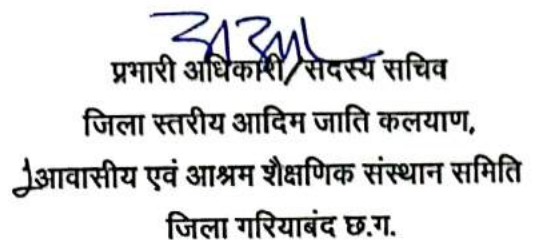 प्रभारी अधिकारी/सदस्य सचिव
जिला स्तरीय आदिम जाति कलयाण,
आवासीय एवं आश्रम शैक्षणिक संस्थान समिति
जिला गरियाबंद छ.ग.